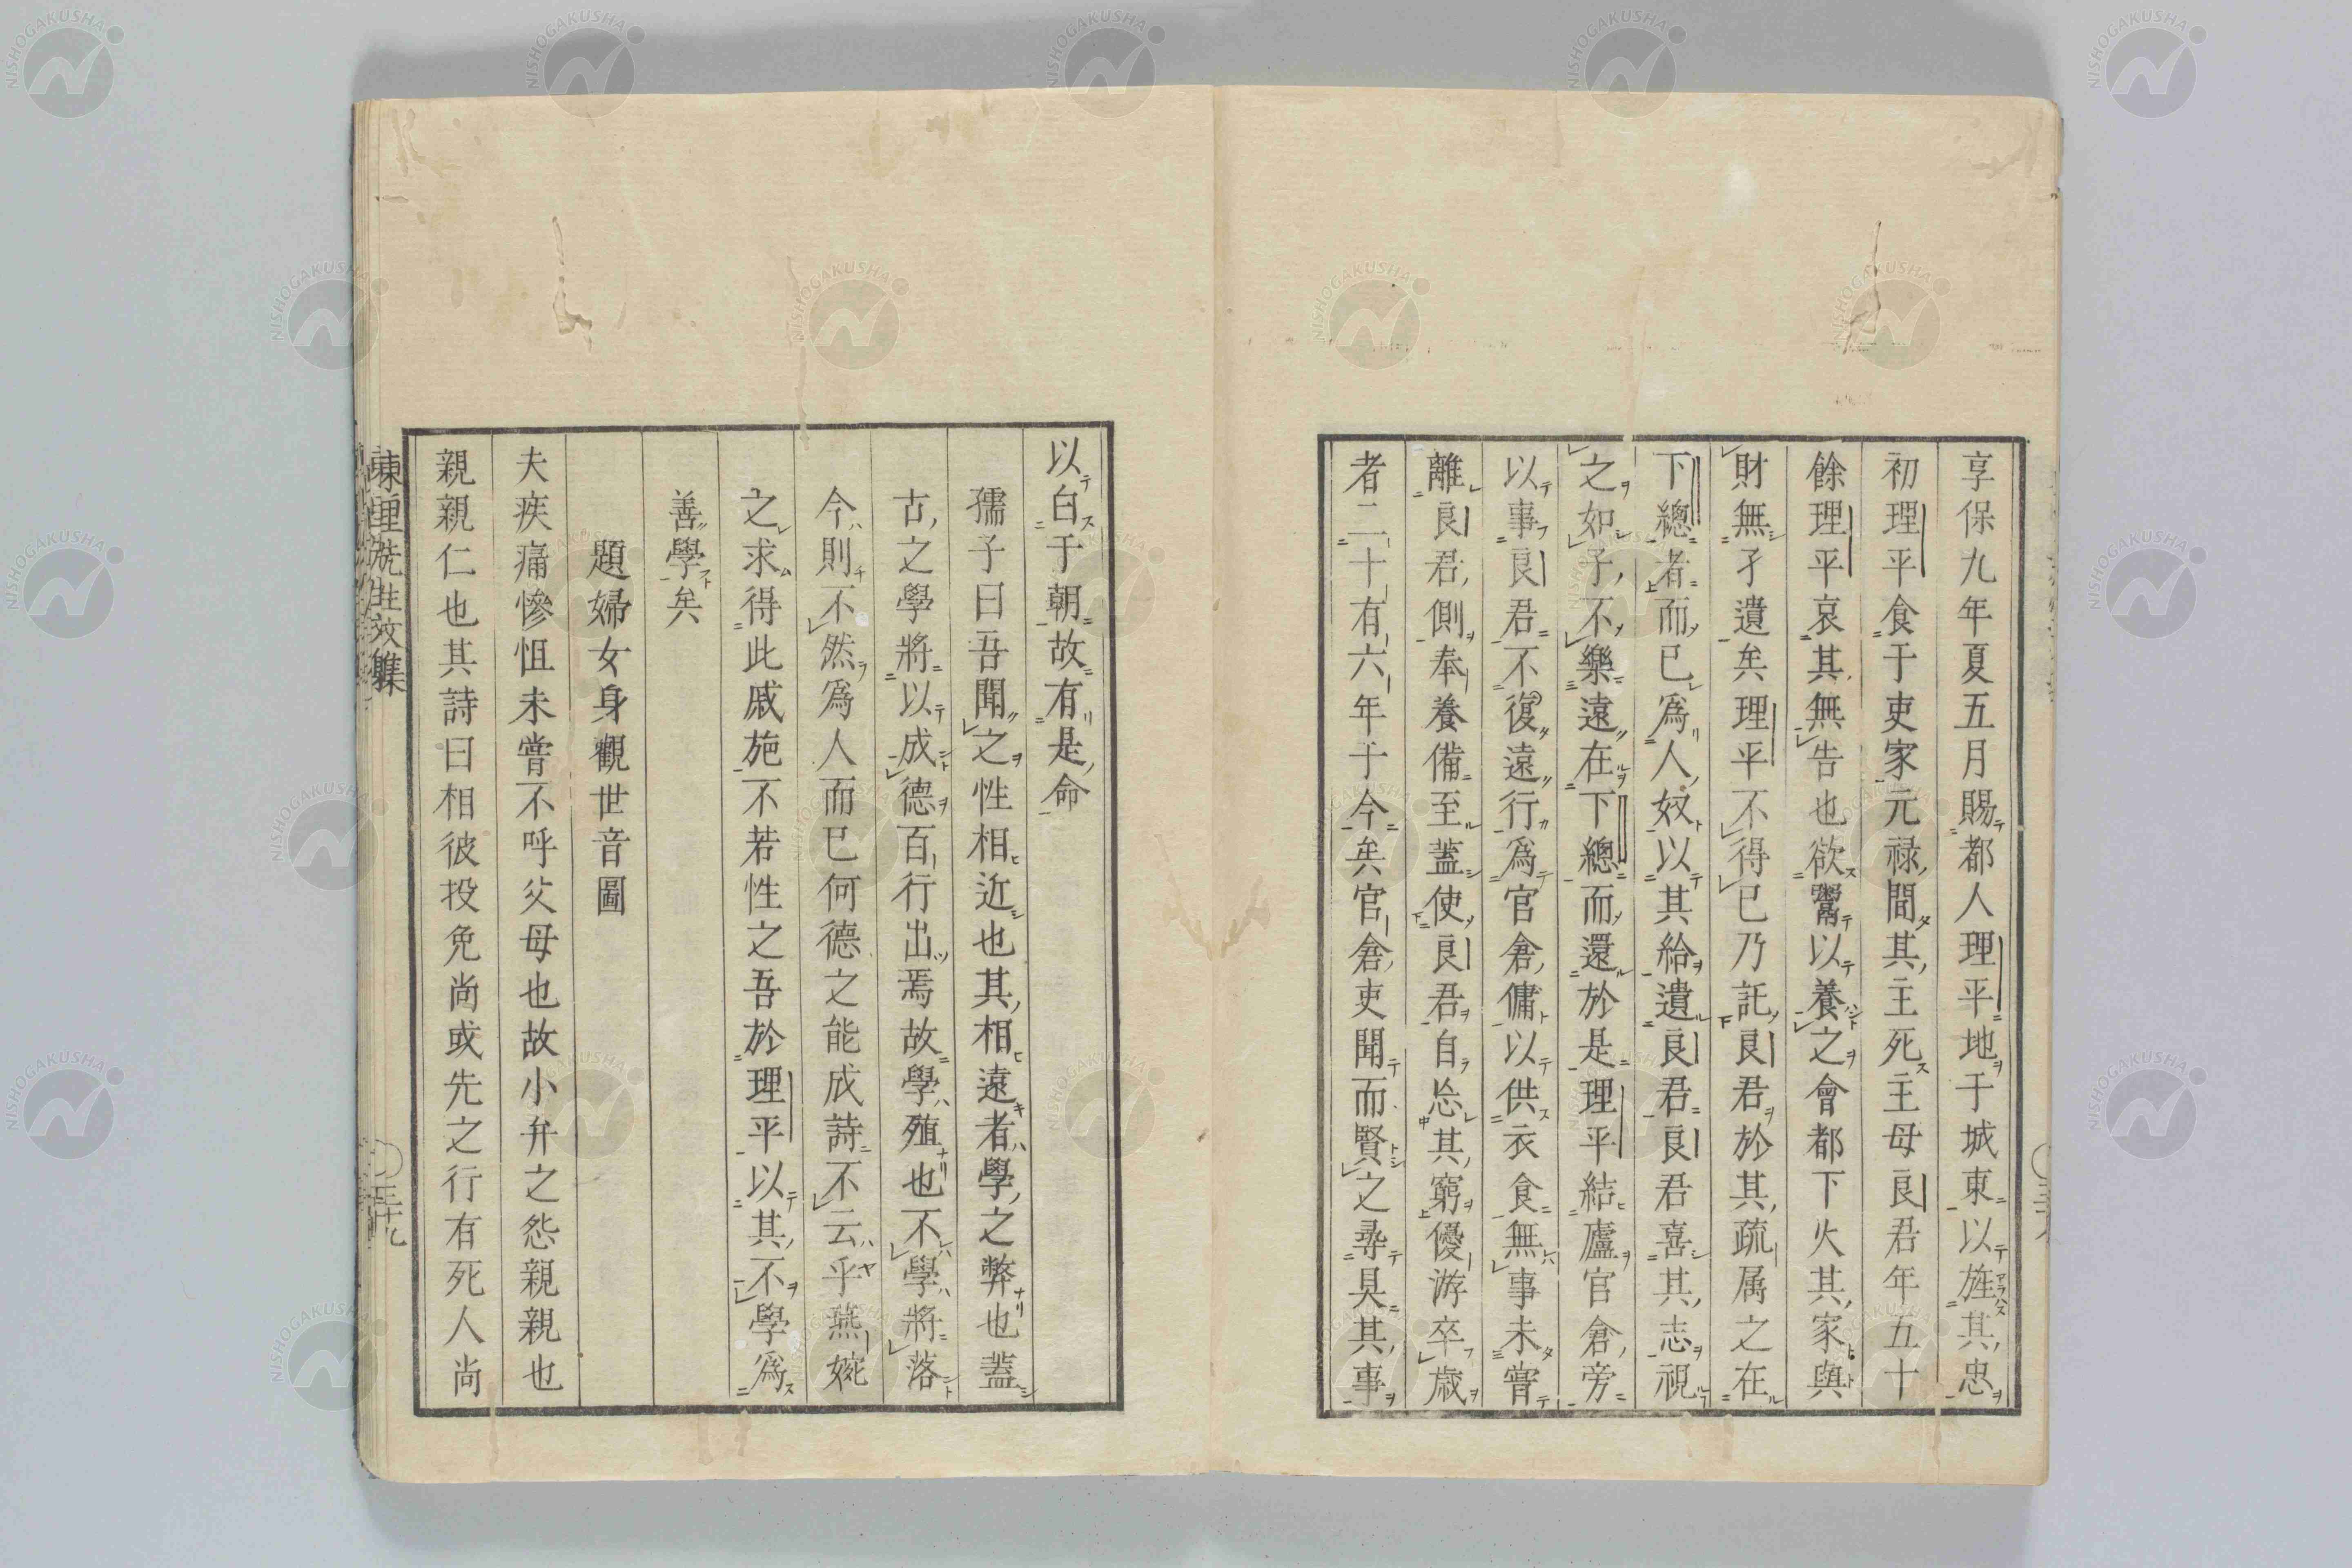 享保九年夏五月賜都人理平地于城東以旌其忠
初理平食于吏家元禄間其主死主母良君年五十
餘理平哀其無告也欲鬻以養之會都下火其家與
財無孑遺矣理平不得已乃託良君於其疏属之在
下總者而已爲人奴以其給遺良君良君喜其志視
之如子不樂遠在下總而還於是理平結廬官倉旁
以事良君不復遠行爲官倉傭以供衣食無事未嘗
離良君側奉養備至蓋使良君自忘其窮優游卒歳
者二十有六年于今矣官倉吏聞而賢之尋具其事
以白于朝故有是命
孺子曰吾聞之性相近也其相遠者學之弊也蓋
古之學將以成德百行出焉故學殖也不學將落
今則不然爲人而已何德之能成詩不云乎燕婉
之求得此戚施不若性之吾於理平以其不學爲
善學矣
題婦女身觀世音圖
夫疾痛慘怛未嘗不呼父母也故小弁之怨親親也
親親仁也其詩曰相彼投兔尚或先之行有死人尚
先生文集
三十九